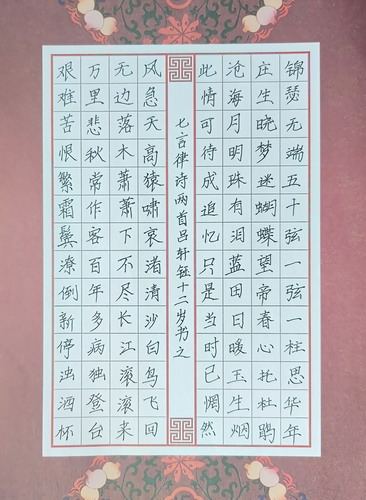 锦瑟无端五十弦一弦一柱思华年
庄生晓梦迷蝴蝶望帝春心托杜鹃
沧海月明珠有泪蓝田日暖玉生烟
此情可待成追忆只是当时已惘然
七言律诗两首吕轩钰十二岁书之
风急天高猿啸哀渚清沙白鸟飞回
无边落木萧萧下不尽长江滚滚来
万里悲秋常作客百年多病独登台
艰难苦恨繁霜鬓潦倒新停浊酒杯